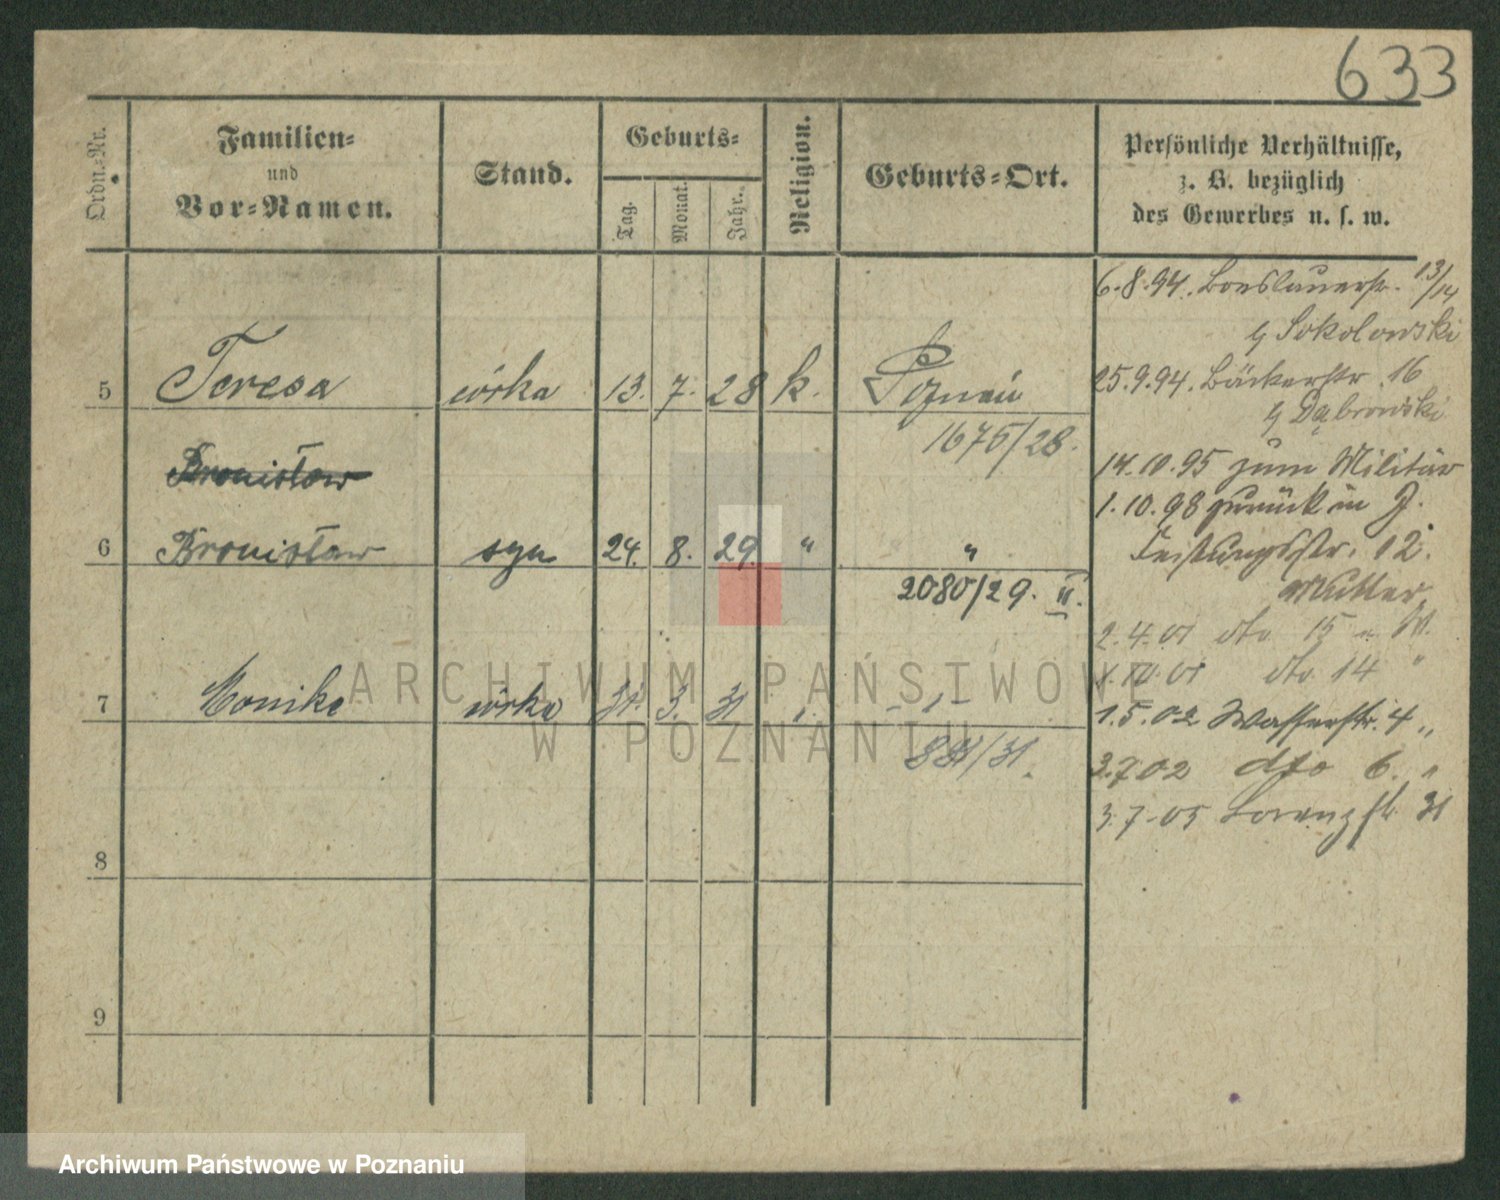 633
Ordn.-Nr.
Familien-
und
Vor-Namen.
Stand.
Geburts-
Tag.
Monat.
Jahr.
Religion.
Geburts-Ort.
Persönliche Verhältnisse,
z. B. bezüglich
des Gewerbes u. s. w.
6.8.94. Breslauerstr. 13/14
b/ Sokolowski
5 Teresa córka 13. 7. 28 k. Poznań
25.9.94. Bäckerstr. 16
b/ Dąbrowski
1675/28.
Bronisław
14.10.95 zum Militär
1.10.98 zurück in J.
6 Bronisław syn 24. 8. 29. " "
Festungsstr. 12.
Mutter
2080/29. II.
2.4.01 dto 15
1.10.01 dto 14 "
7 Monika córka 31. 3. 31
1.5.02 Wasserstr. 4 "
881/31.
2.7.02 dto 6. "
3.7.05 Lorenzstr. 31
8
9
ARCHIWUM PAŃSTWOWE
W POZNANIU
Archiwum Państwowe w Poznaniu